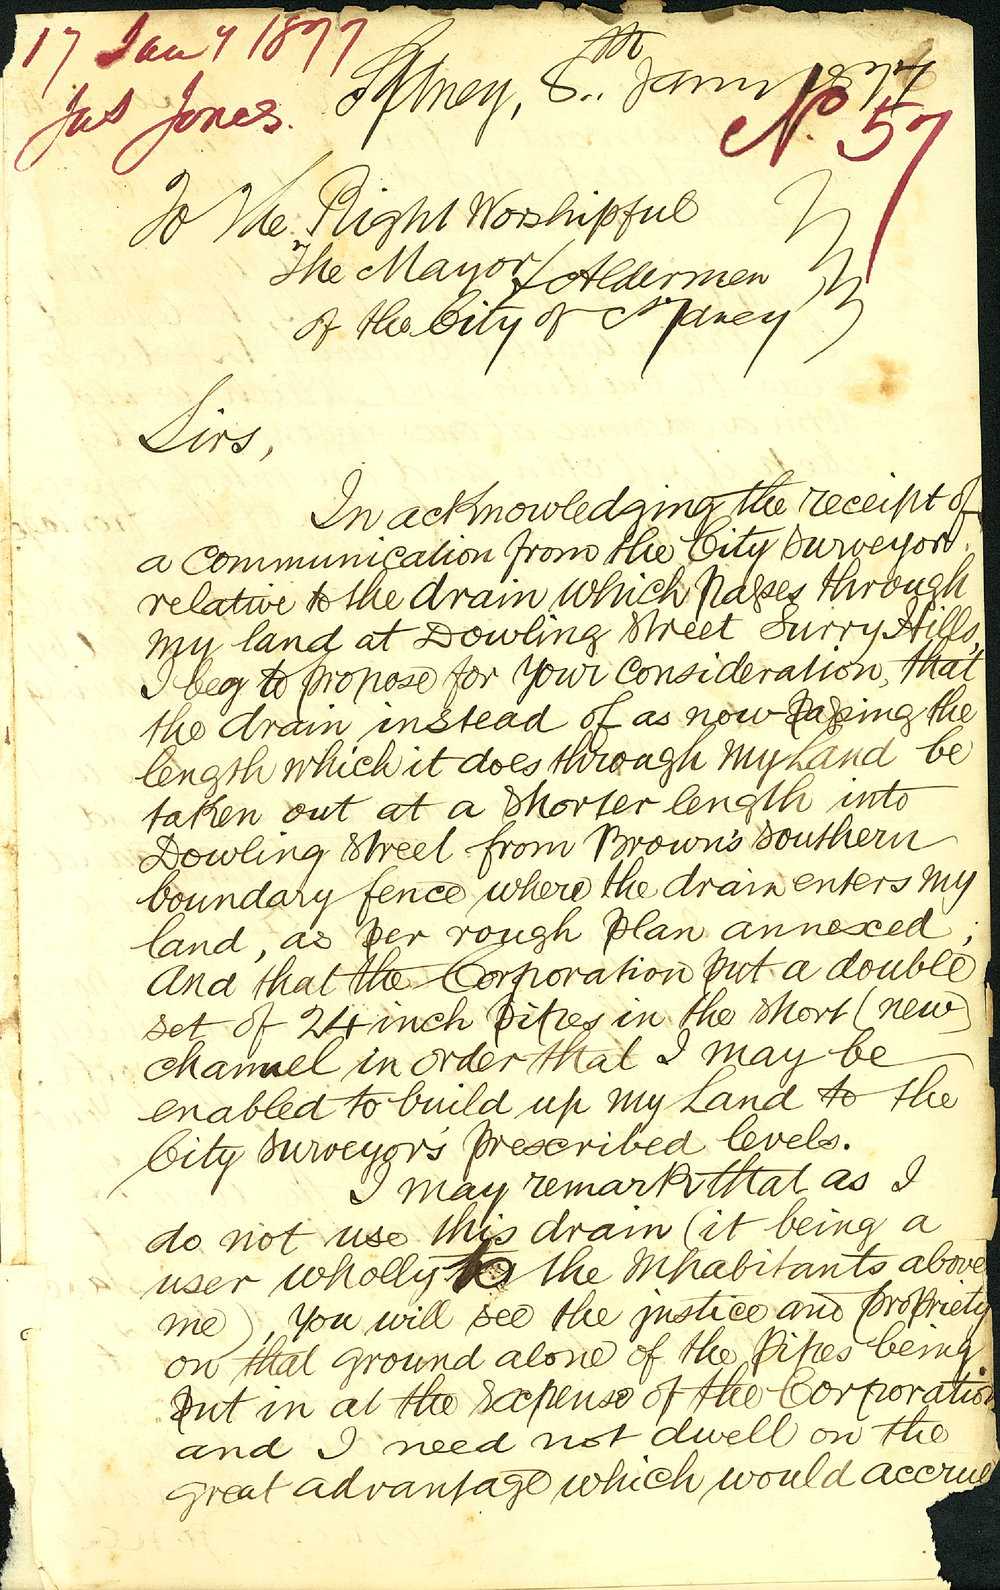 17 Jany 1877
Jas Jones.
No 57
Sydney, 8th Jany 1877
To The Right Worshipful
The Mayor / Aldermen
of the City of Sydney
Sirs,
In acknowledging the receipt of
a communication from the City Surveyor
relative to the drain which passes through
my land at Dowling Street Surry Hills,
I beg to propose for your consideration, that
the drain instead of as now passing the
length which it does through my Land be
taken out at a shorter length into
Dowling Street from Brown's Southern
boundary fence where the drain enters my
land, as per rough plan annexed;
And that the Corporation put a double
set of 24 inch pipes in the short (new)
channel in order that I may be
enabled to build up my Land to the
City Surveyor's prescribed levels.
I may remark that as I
do not use this drain (it being a
user wholly to the Inhabitants above
me), you will see the justice and propriety
on that ground alone of the pipes being
put in at the expense of the Corporation
and I need not dwell on the
great advantage which would accrue